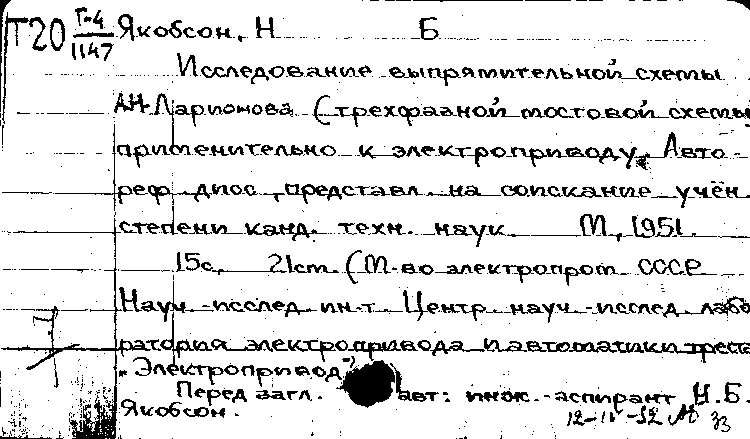 Т20 Г-4/1147 Якобсон, Н Б
Исследование выпрямительной схемы
А.Н. Ларионова (трехфазной мостовой схемы
применительно к электроприводу. Авто-
реф. дисс., представл. на соискание учён.
степени канд. техн. наук. М., 1951.
15с. 21см. (М-во электропром. СССР
Науч.-исслед. ин-т. Центр. науч.-исслед. лабо
ратория электропривода и автоматики треста
„Электропривод")
Перед загл. авт: инж.-аспирант Н.Б.
Якобсон.
12-IV-52
33